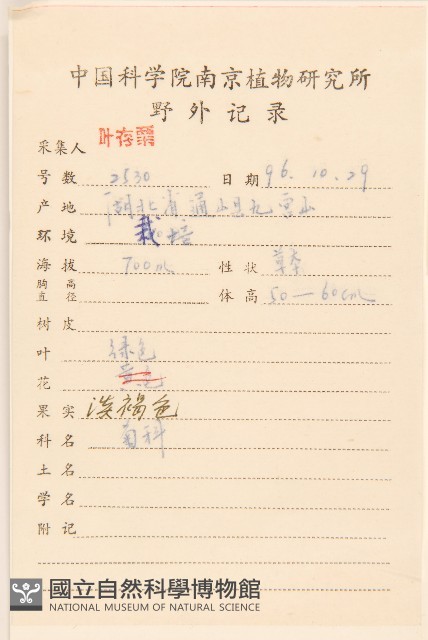 中国科学院南京植物研究所
野外记录
采集人 叶存粟
号数 2530 日期 96.10.29
产地 湖北省通山县九宫山
环境 栽培
海拔 700m 性状 草本
胸高直径 体高 50—60cm
树皮
叶 绿色
花 黄色
果实 淡褐色
科名 菊科
土名
学名
附记
國立自然科學博物館
NATIONAL MUSEUM OF NATURAL SCIENCE